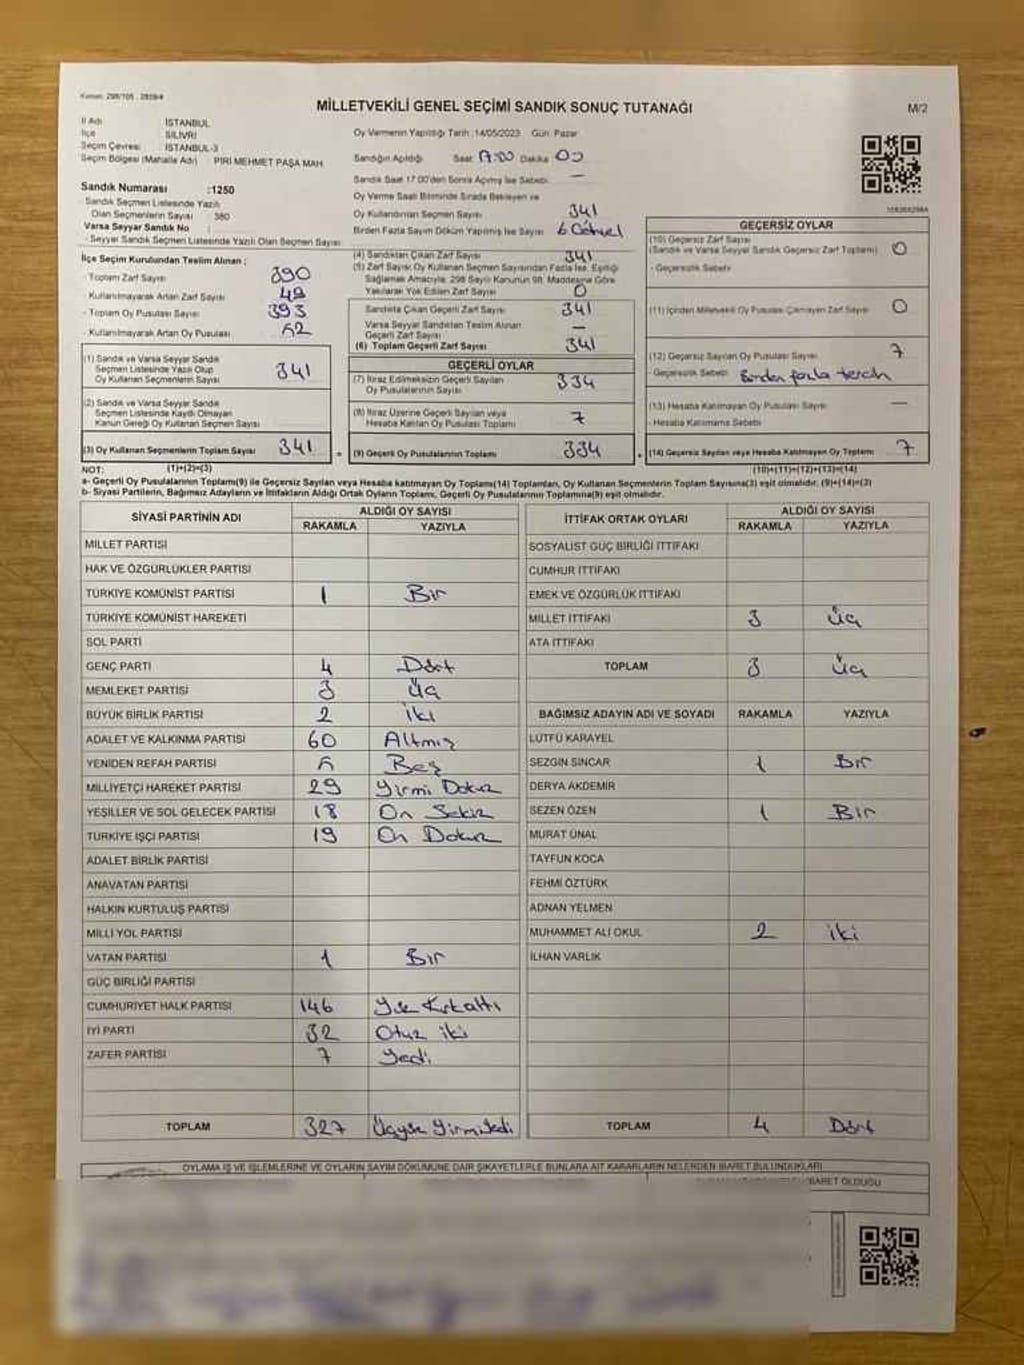 Kanun: 298/105 , 2839/4
MİLLETVEKİLİ GENEL SEÇİMİ SANDIK SONUÇ TUTANAĞI
M/2
İl Adı İSTANBUL
İlçe SİLİVRİ
Seçim Çevresi İSTANBUL-3
Seçim Bölgesi (Mahalle Adı) PİRİ MEHMET PAŞA MAH.
Sandık Numarası :1250
- Sandık Seçmen Listesinde Yazılı
Olan Seçmenlerin Sayısı 380
Varsa Seyyar Sandık No :
- Seyyar Sandık Seçmen Listesinde Yazılı Olan Seçmen Sayısı
İlçe Seçim Kurulundan Teslim Alınan ;
- Toplam Zarf Sayısı 390
- Kullanılmayarak Artan Zarf Sayısı 49
- Toplam Oy Pusulası Sayısı 393
- Kullanılmayarak Artan Oy Pusulası 52
(1) Sandık ve Varsa Seyyar Sandık
Seçmen Listesinde Yazılı Olup
Oy Kullanan Seçmenlerin Sayısı 341
(2) Sandık ve Varsa Seyyar Sandık
Seçmen Listesinde Kaydı Olmayan
Kanun Gereği Oy Kullanan Seçmen Sayısı
(3) Oy Kullanan Seçmenlerin Toplam Sayısı 341
Oy Vermenin Yapıldığı Tarih :14/05/2023 Gün: Pazar
Sandığın Açıldığı Saat: 17:00 Dakika 00
Sandık Saat 17:00'den Sonra Açılmış İse Sebebi: —
Oy Verme Saati Bitiminde Sırada Bekleyen ve
Oy Kullandırılan Seçmen Sayısı 341
Birden Fazla Sayım Döküm Yapılmış İse Sayısı
(4) Sandıktan Çıkan Zarf Sayısı 341
(5) Zarf Sayısı Oy Kullanan Seçmen Sayısından Fazla İse, Eşitliği
Sağlamak Amacıyla, 298 Sayılı Kanunun 98. Maddesine Göre
Yakılarak Yok Edilen Zarf Sayısı 0
Sandıkta Çıkan Geçerli Zarf Sayısı 341
Varsa Seyyar Sandıktan Teslim Alınan
Geçerli Zarf Sayısı —
(6) Toplam Geçerli Zarf Sayısı 341
GEÇERLİ OYLAR
(7) İtiraz Edilmeksizin Geçerli Sayılan
Oy Pusulalarının Sayısı 334
(8) İtiraz Üzerine Geçerli Sayılan veya
Hesaba Katılan Oy Pusulası Toplamı 7
= (9) Geçerli Oy Pusulalarının Toplamı 334
GEÇERSİZ OYLAR
(10) Geçersiz Zarf Sayısı
(Sandık ve Varsa Seyyar Sandık Geçersiz Zarf Toplamı) 0
- Geçersizlik Sebebi
(11) İçinden Milletvekili Oy Pusulası Çıkmayan Zarf Sayısı 0
(12) Geçersiz Sayılan Oy Pusulası Sayısı 7
- Geçersizlik Sebebi Birden fazla tercih
(13) Hesaba Katılmayan Oy Pusulası Sayısı —
- Hesaba Katılmama Sebebi
(14) Geçersiz Sayılan veya Hesaba Katılmayan Oy Toplamı 7
NOT: (1)+(2)=(3)
(10)+(11)+(12)+(13)=(14)
a- Geçerli Oy Pusulalarının Toplamı(9) ile Geçersiz Sayılan veya Hesaba katılmayan Oy Toplamı(14) Toplamları, Oy Kullanan Seçmenlerin Toplam Sayısına(3) eşit olmalıdır. (9)+(14)=(3)
b- Siyasi Partilerin, Bağımsız Adayların ve İttifakların Aldığı Ortak Oyların Toplamı, Geçerli Oy Pusulalarının Toplamına(9) eşit olmalıdır.
SİYASİ PARTİNİN ADI ALDIĞI OY SAYISI
RAKAMLA YAZIYLA
MİLLET PARTİSİ
HAK VE ÖZGÜRLÜKLER PARTİSİ
TÜRKİYE KOMÜNİST PARTİSİ 1 Bir
TÜRKİYE KOMÜNİST HAREKETİ
SOL PARTİ
GENÇ PARTİ 4 Dört
MEMLEKET PARTİSİ 3 Üç
BÜYÜK BİRLİK PARTİSİ 2 iki
ADALET VE KALKINMA PARTİSİ 60 Altmış
YENİDEN REFAH PARTİSİ 5 Beş
MİLLİYETÇİ HAREKET PARTİSİ 29 Yirmi Dokuz
YEŞİLLER VE SOL GELECEK PARTİSİ 18 On Sekiz
TÜRKİYE İŞÇİ PARTİSİ 19 On Dokuz
ADALET BİRLİK PARTİSİ
ANAVATAN PARTİSİ
HALKIN KURTULUŞ PARTİSİ
MİLLİ YOL PARTİSİ
VATAN PARTİSİ 1 Bir
GÜÇ BİRLİĞİ PARTİSİ
CUMHURİYET HALK PARTİSİ 146 Yüz Kırkaltı
İYİ PARTİ 32 Otuz iki
ZAFER PARTİSİ 7 Yedi
TOPLAM 327 Üçyüz Yirmiyedi
İTTİFAK ORTAK OYLARI ALDIĞI OY SAYISI
RAKAMLA YAZIYLA
SOSYALİST GÜÇ BİRLİĞİ İTTİFAKI
CUMHUR İTTİFAKI
EMEK VE ÖZGÜRLÜK İTTİFAKI
MİLLET İTTİFAKI 3 Üç
ATA İTTİFAKI
TOPLAM 3 Üç
BAĞIMSIZ ADAYIN ADI VE SOYADI RAKAMLA YAZIYLA
LÜTFÜ KARAYEL
SEZGİN SİNCAR 1 Bir
DERYA AKDEMİR
SEZEN ÖZEN 1 Bir
MURAT ÜNAL
TAYFUN KOCA
FEHMİ ÖZTÜRK
ADNAN YELMEN
MUHAMMET ALİ OKUL 2 iki
İLHAN VARLIK
TOPLAM 4 Dört
OYLAMA İŞ VE İŞLEMLERİNE VE OYLARIN SAYIM DÖKÜMÜNE DAİR ŞİKAYETLERLE BUNLARA AİT KARARLARIN NELERDEN İBARET BULUNDUKLARI
İBARET OLDUĞU